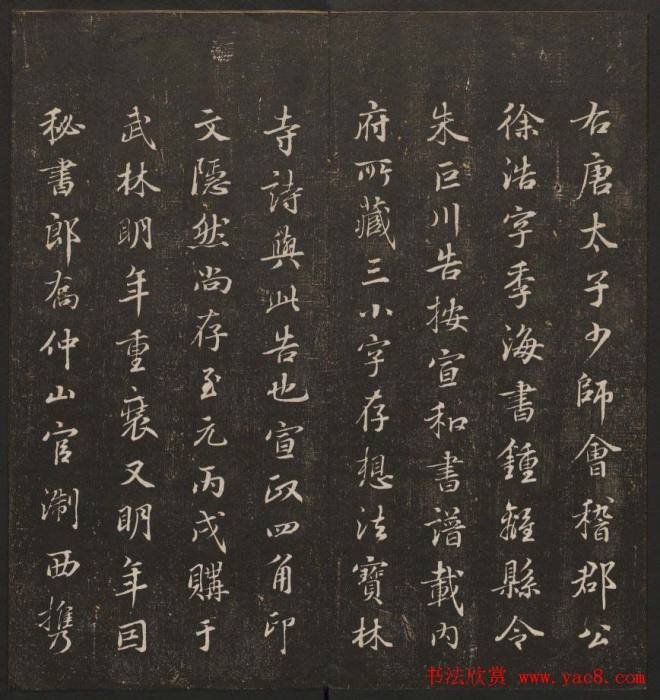 右唐太子少師會稽郡公
徐浩字季海書鍾離縣令
朱巨川告按宣和書譜載內
府所藏三小字存想法寶林
寺詩與此告也宣政四角印
文隱然尚存至元丙戌購于
武林明年重裝又明年因
秘書郎喬仲山官淛西攜
书法欣赏 www.yac8.com